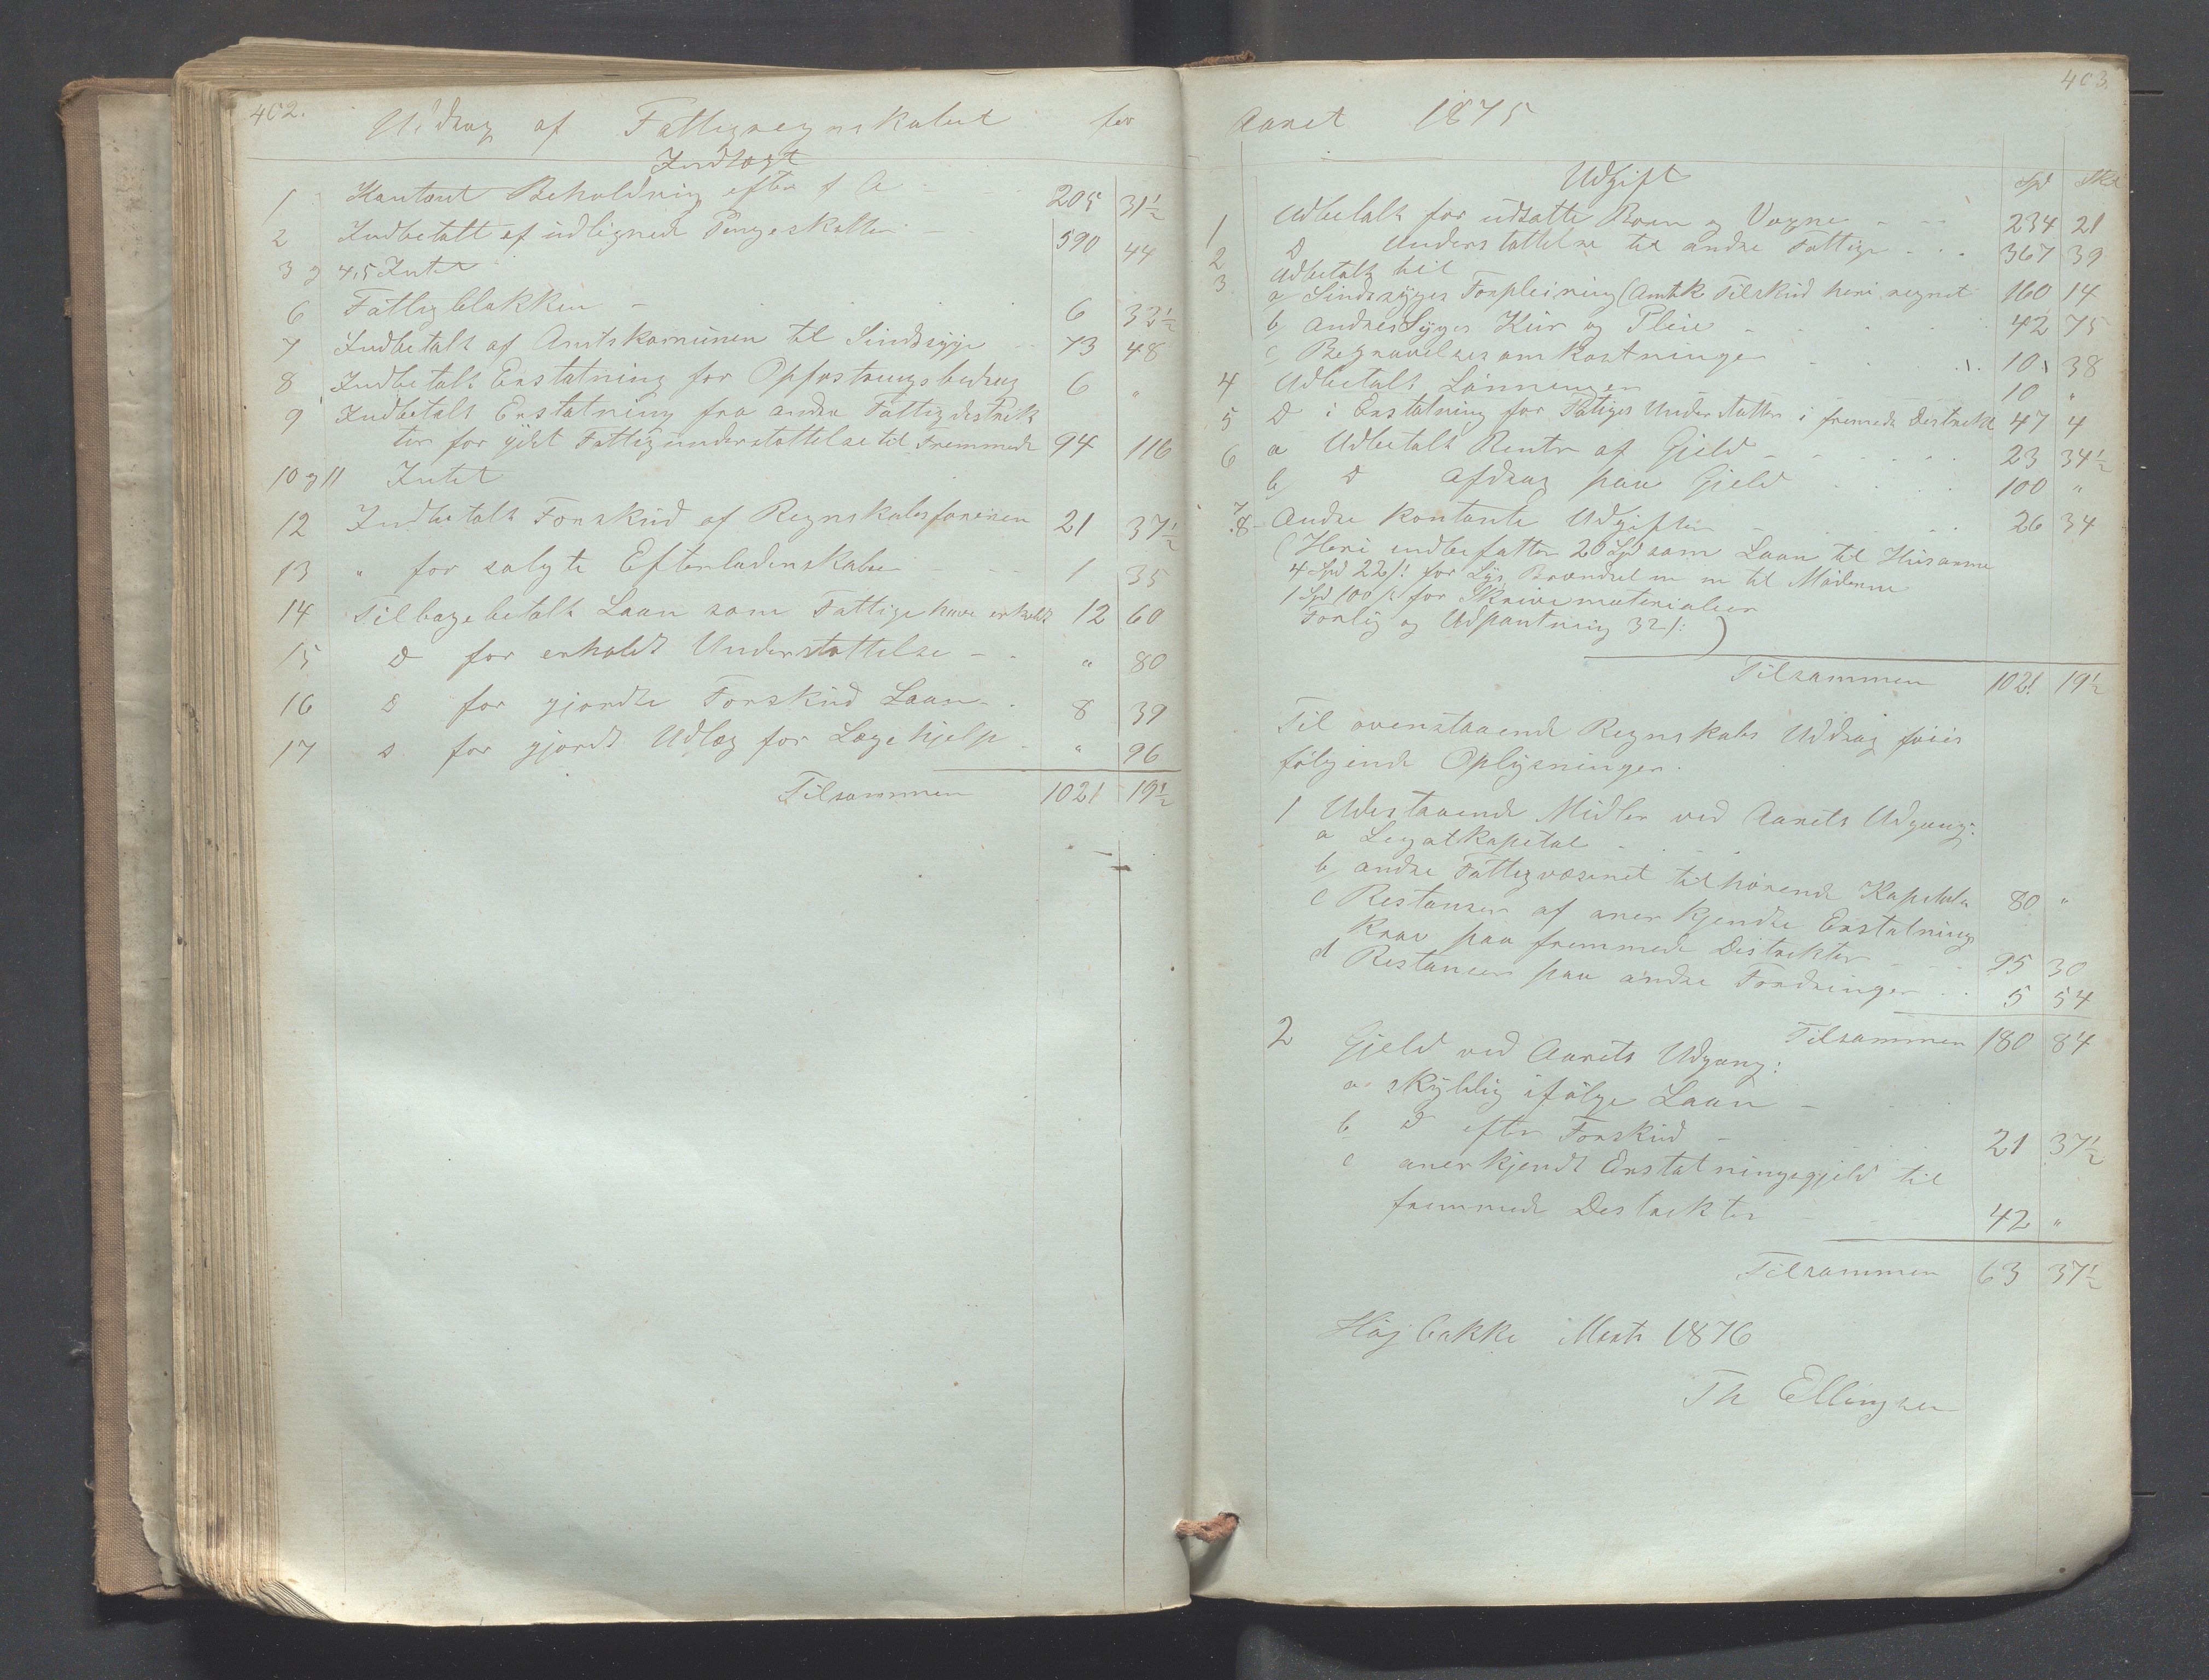 402.
Uddrag af Fattigregnskabet for
Indtægt
1 Kontant Beholdning efter f A 205 31½
2 Indbetalt af udlignede Pengeskatter 590 44
3 og 4,5 Intet
6 Fattigblokken 6 32½
7 Indbetalt af Amtskomunen til Sindssyge 73 48
8 Indbetalt Erstatning for Opfostringsbidrag 6 "
9 Indbetalt Erstatning fra andre Fattigdestrik
ter for ydet Fattigunderstøttelse til Fremmede 94 116
10 og 11 Intet
12 Indbetalt Forskud af Regnskabsføreren 21 37½
13 " for solgte Efterladenskaber 1 35
14 Tilbagebetalt Laan som Fattige have erholdt 12 60
15 D for erholdt Understøttelse " 80
16 D for gjordte Forskud Laan 8 39
17 D for gjordt Udlæg for Lægehjelp " 96
Tilsammen 1021 19½
403.
Aaret 1875
Udgift Spd Skl
1 Udbetalt for udsatte Børn og Voxne 234 21
2 D Understøttelse til andre Fattige 367 39
3 Udbetalt til
a Sindssyges Forpleining (Amtsk Tilskud heri regnet 160 14
b andres Syges Kur og Pleie 42 75
c Begravelsesomkostninger 10 38
4 Udbetalt Lønninger 10 "
5 D i Erstatning for Fatiges Understøtter i fremede Destrikt 47 4
6 a Udbetalt Renter af Gjeld 23 34½
b D Afdrag paa Gjeld 100 "
7.8 Andre kontante Udgifter 26 34
(Heri indbefatter 20 Spd som Laan til Husarme
4 Spd 22 s: for Lys Brændsel m m til Møderne
1 Spd 100 s: for Skrivematerialier
Forlig og Udpantning 32 s: )
Tilsammen 1021 19½
Til ovenstaaende Regnskabs Uddrag føies
følgende Oplysninger.
1 Udestaaende Midler ved Aarets Udgang:
a Legatkapital
b andre Fattigvæsenet tilhørende Kapitaler 80 "
c Restanser af anerkjendte Erstatnings
krav paa fremmede Distrikter 95 30
d Restanser paa andre Fordringer 5 54
Tilsammen 180 84
2 Gjeld ved Aarets Udgang:
a skyldig ifølge Laan
b D efter Forskud 21 37½
c anerkjendt Erstatningsgjeld til
fremmede Destrikter 42 "
Tilsammen 63 37½
Højbakke Marts 1876
Th Ellingsen